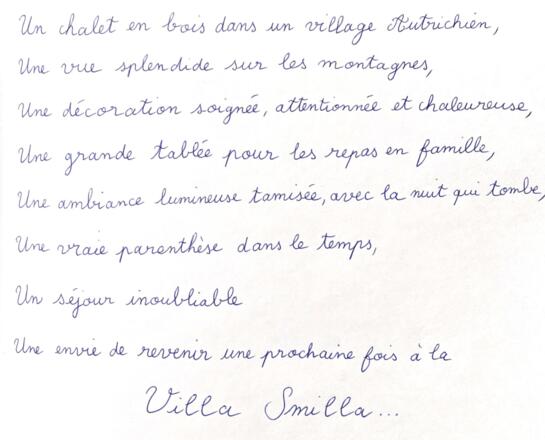 Un chalet en bois dans un village Autrichien,
Une vue splendide sur les montagnes,
Une décoration soignée, attentionnée et chaleureuse,
Une grande tablée pour les repas en famille,
Une ambiance lumineuse tamisée, avec la nuit qui tombe,
Une vraie parenthèse dans le temps,
Un séjour inoubliable
Une envie de revenir une prochaine fois à la
Villa Smilla...